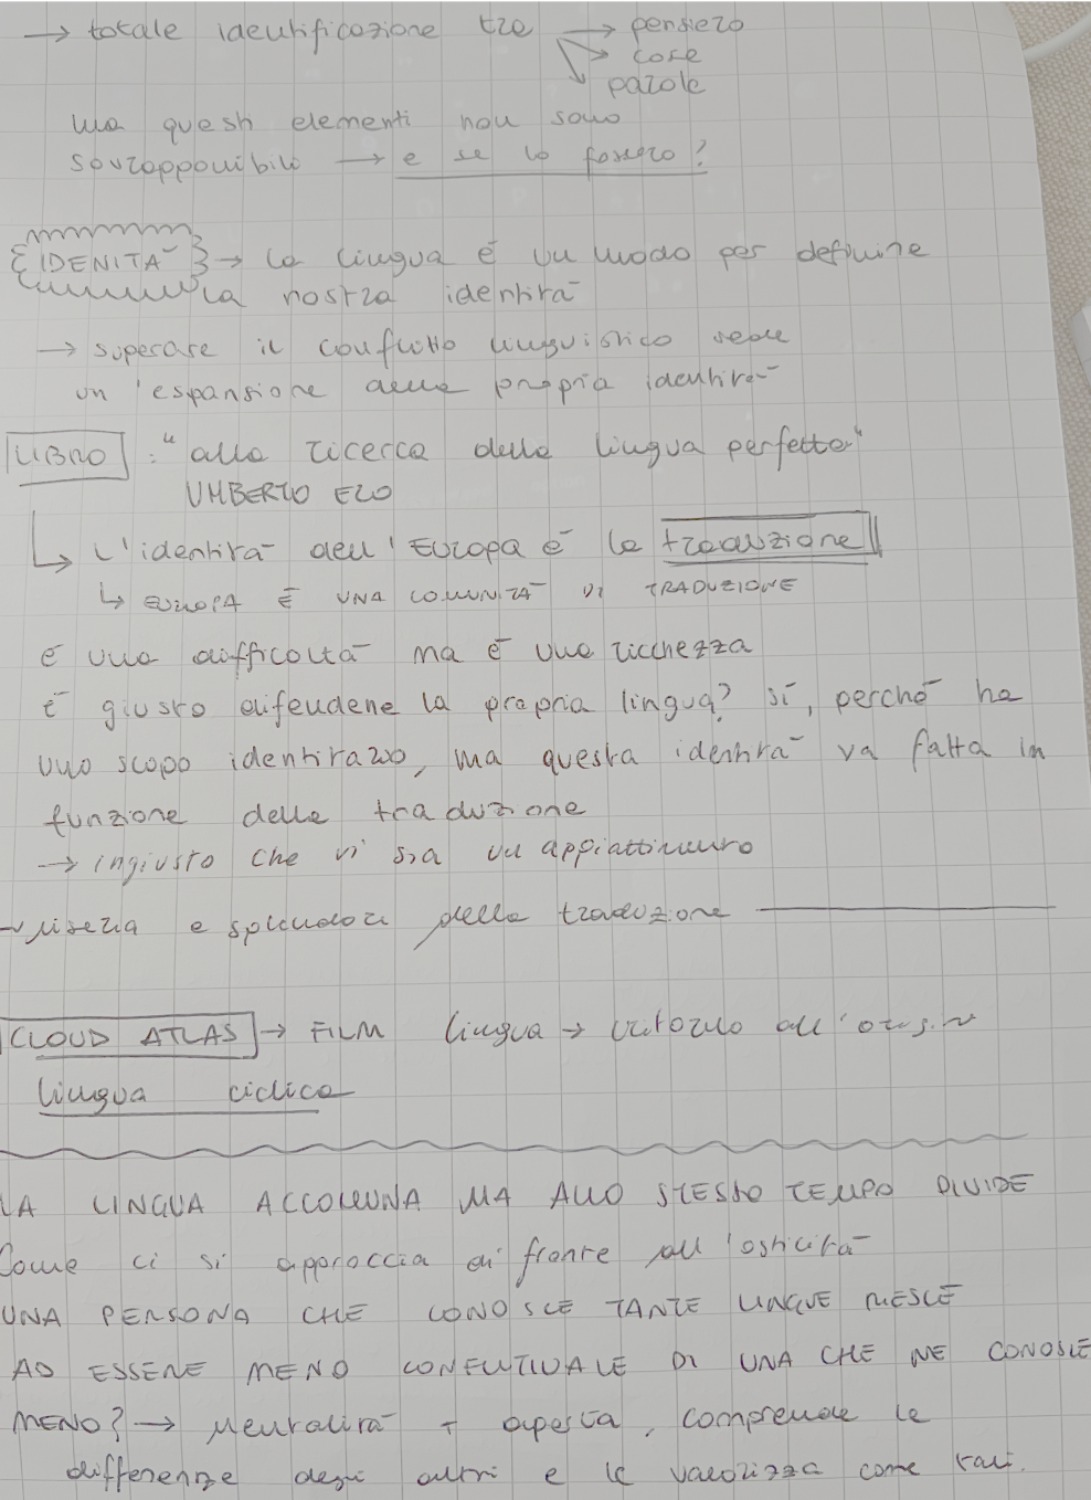 → totale identificazione tra → pensiero
→ cose
→ parole
ma questi elementi non sono
sovrapponibili → e se lo fossero?
IDENITÀ → la lingua è un modo per definire
la nostra identità
→ superare il conflitto linguistico
un'espansione della propria identità
LIBRO : "alla ricerca della lingua perfetta"
UMBERTO ECO
↳ L'identità dell'Europa è la traduzione
↳ EUROPA È UNA COMUNITÀ DI TRADUZIONE
è una difficoltà ma è una ricchezza
è giusto difendere la propria lingua? sì, perché ha
uno scopo identitario, ma questa identità va fatta in
funzione della traduzione
→ ingiusto che vi sia un appiattimento
miseria e splendori della traduzione
CLOUD ATLAS → FILM lingua → ritorno all'
lingua ciclica
LA LINGUA ACCOMUNA MA ALLO STESSO TEMPO DIVIDE
Come ci si approccia di fronte all'osticità
UNA PERSONA CHE CONOSCE TANTE LINGUE RIESCE
AD ESSERE MENO CONFLITTUALE DI UNA CHE NE CONOSCE
MENO? → neutralità + aperta, comprende le
differenze degli altri e le valorizza come tali.